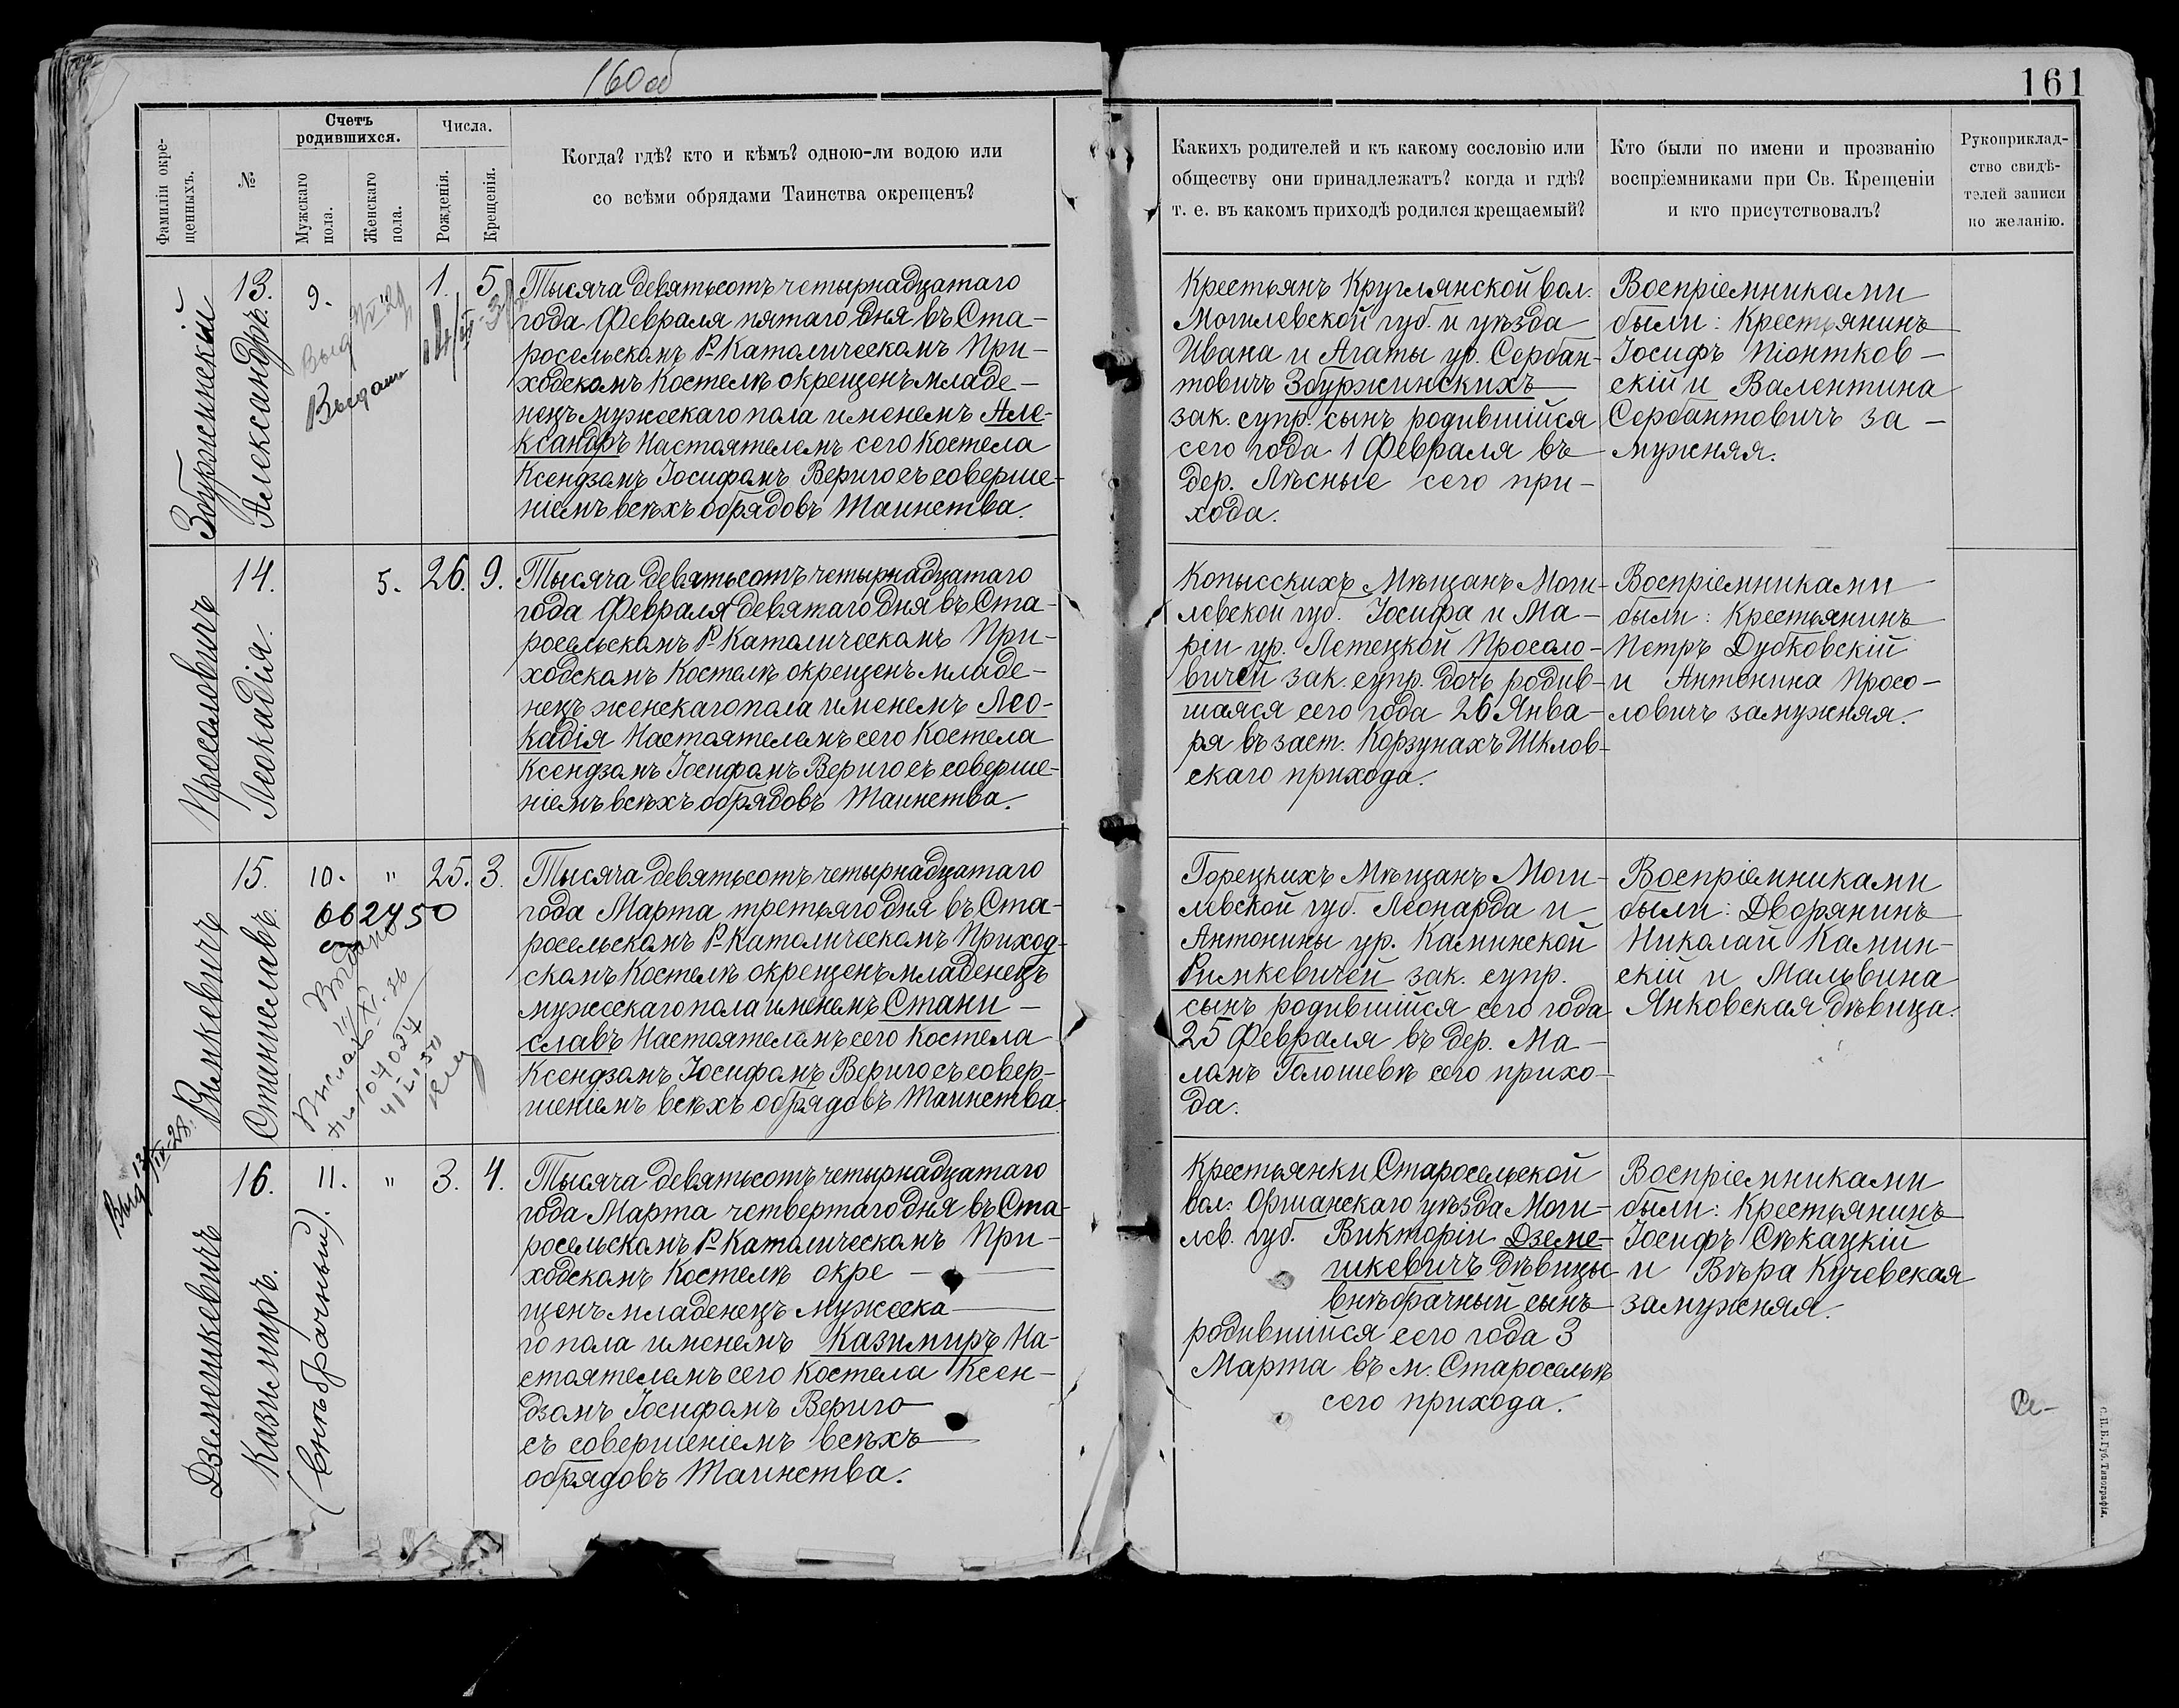 160 об
161
Фамиліи окре-
щенныхъ.
№
Счетъ
родившихся.
Мужскаго
пола.
Женскаго
пола.
Числа.
Рожденія.
Крещенія.
Когда? гдѣ? кто и кѣмъ? одною-ли водою или
со всѣми обрядами Таинства окрещенъ?
Какихъ родителей и къ какому сословію или
обществу они принадлежатъ? когда и гдѣ?
т. е. въ какомъ приходѣ родился крещаемый?
Кто были по имени и прозванію
воспріемниками при Св. Крещеніи
и кто присутствовалъ?
Рукоприклад-
ство свидѣ-
телей записи
по желанію.
Збуржинскій
Александръ.
13.
9.
Выдана
1.
5.
Тысяча девятьсотъ четырнадцатаго
года Февраля пятаго дня въ Ста-
росельскомъ Р-Католическомъ При-
ходскомъ Костелѣ окрещенъ младе-
нецъ мужескаго пола именемъ Але-
ксандръ Настоятелемъ сего Костела
Ксендзомъ Іосифомъ Вериго съ соверше-
ніемъ всѣхъ обрядовъ Таинства.
Крестьянъ Круглянской вол.
Могилевской губ. и уѣзда
Ивана и Агаты ур. Сербан-
товичъ Збуржинскихъ
зак. супр. сынъ родившійся
сего года 1 Февраля въ
дер. Лѣсные сего при-
хода.
Воспріемниками
были: Крестьянинъ
Іосифъ Піонтков-
скій и Валентина
Сербантовичъ за-
мужняя.
Просоловичъ
Леокадія.
14.
5.
26.
9.
Тысяча девятьсотъ четырнадцатаго
года Февраля девятаго дня въ Ста-
росельскомъ Р-Католическомъ При-
ходскомъ Костелѣ окрещенъ младе-
нецъ женскаго пола именемъ Лео-
кадія Настоятелемъ сего Костела
Ксендзомъ Іосифомъ Вериго съ соверше-
ніемъ всѣхъ обрядовъ Таинства.
Копысскихъ Мѣщанъ Моги-
левской губ. Іосифа и Ма-
ріи ур. Летецкой Просоло-
вичей зак. супр. дочь родив-
шаяся сего года 26 Янва-
ря въ заст. Корзунахъ Шклов-
скаго прихода.
Воспріемниками
были: Крестьянинъ
Петръ Дубковскій
и Антонина Просо-
ловичъ замужняя.
Римкевичъ
Станиславъ.
15.
10.
"
25.
3.
662450
Тысяча девятьсотъ четырнадцатаго
года Марта третьяго дня въ Ста-
росельскомъ Р-Католическомъ Приход-
скомъ Костелѣ окрещенъ младенецъ
мужескаго пола именемъ Стани-
славъ Настоятелемъ сего Костела
Ксендзомъ Іосифомъ Вериго съ совер-
шеніемъ всѣхъ обрядовъ Таинства.
Горецкихъ Мѣщанъ Моги-
левской губ. Леонарда и
Антонины ур. Каминской
Римкевичей зак. супр.
сынъ родившійся сего года
25 Февраля въ дер. Ма-
ломъ Голошевѣ сего прихо-
да.
Воспріемниками
были: Дворянинъ
Николай Камин-
скій и Мальвина
Янковская дѣвица.
Дземешкевичъ
Казимиръ.
(внѣбрачный).
16.
11.
"
3.
4.
Тысяча девятьсотъ четырнадцатаго
года Марта четвертаго дня въ Ста-
росельскомъ Р-Католическомъ При-
ходскомъ Костелѣ окре-
щенъ младенецъ мужеска-
го пола именемъ Казимиръ На-
стоятелемъ сего Костела Ксен-
дзомъ Іосифомъ Вериго
съ совершеніемъ всѣхъ
обрядовъ Таинства.
Крестьянки Старосельской
вол. Оршанскаго уѣзда Моги-
лев. губ. Викторіи Дземе-
шкевичъ дѣвицы
внѣбрачный сынъ
родившійся сего года 3
Марта въ м. Старосельѣ
сего прихода.
Воспріемниками
были: Крестьянинъ
Іосифъ Сѣкацкій
и Вѣра Кучевская
замужняя.
С.П.Б. Губ. Типографія.